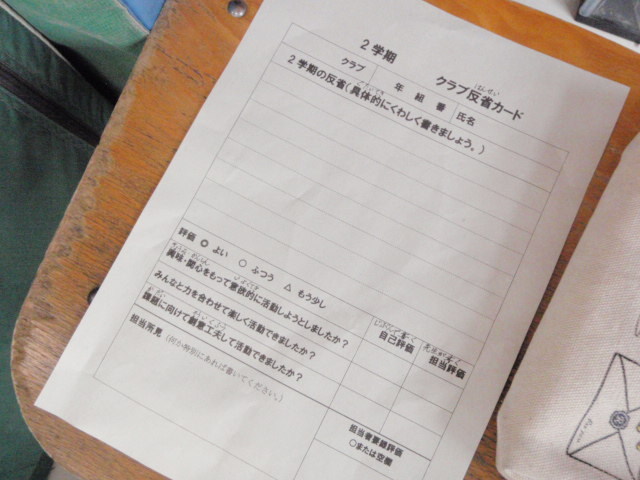 ２学期　クラブ反省カード
はんせい
クラブ　年　組　番　氏名
２学期の反省（具体的にくわしく書きましょう。）
評価　◎　よい　○　ふつう　△　もう少し
じぶんで書く　先生が書く
自己評価　担当評価
興味・関心をもって意欲的に活動しようとしましたか？
みんなと力を合わせて楽しく活動できましたか？
課題に向けて創意工夫して活動できましたか？
担当所見（何か特別にあれば書いてください。）
担当者要録評価
○または空欄